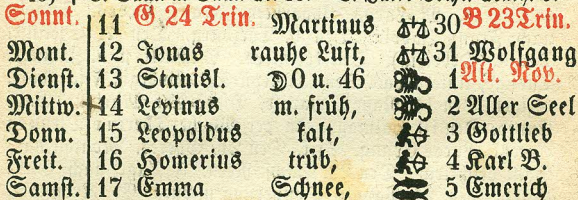 Sonnt. 11 G 24 Trin. Martinus 30 B 23 Trin.
Mont. 12 Jonas rauhe Luft, 31 Wolfgang
Dienst. 13 Stanisl. 0 u. 46 1 Alt. Nov.
Mittw. 14 Levinus m. früh, 2 Aller Seel
Donn. 15 Leopoldus kalt, 3 Gottlieb
Freit. 16 Homerius trüb, 4 Karl B.
Samst. 17 Emma Schnee, 5 Emerich